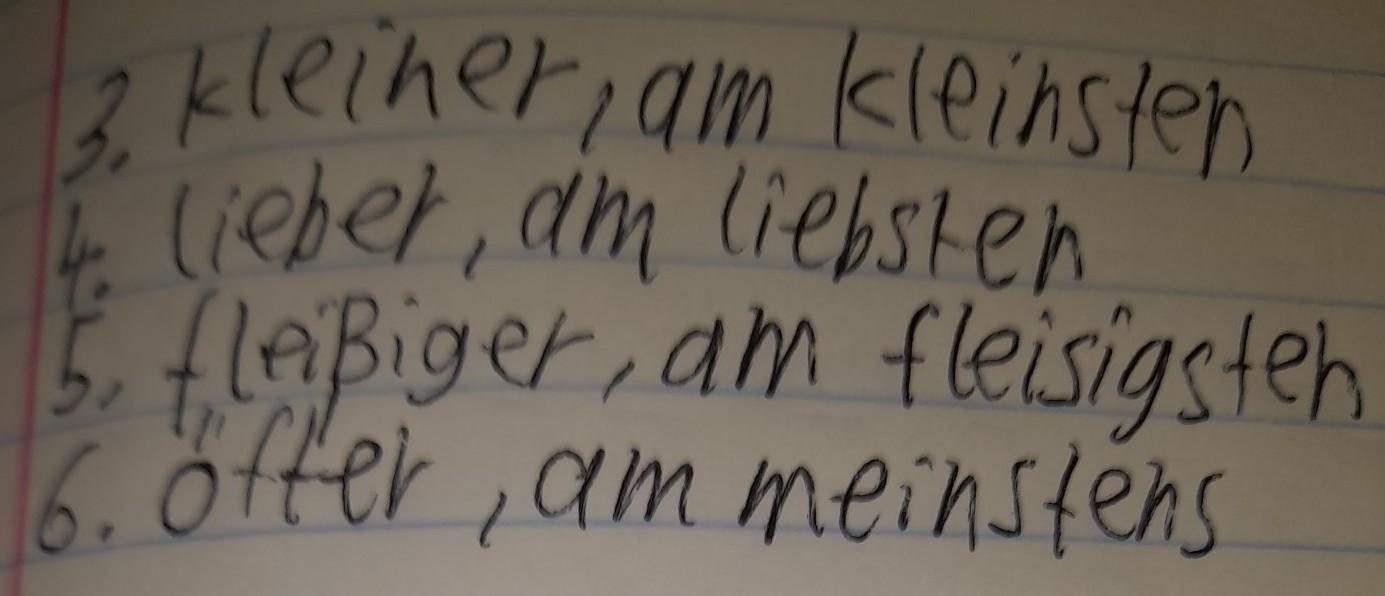 3. kleiner, am kleinsten
4. lieber, am liebsten
5. fleißiger, am fleisigsten
6. öfter, am meinstens